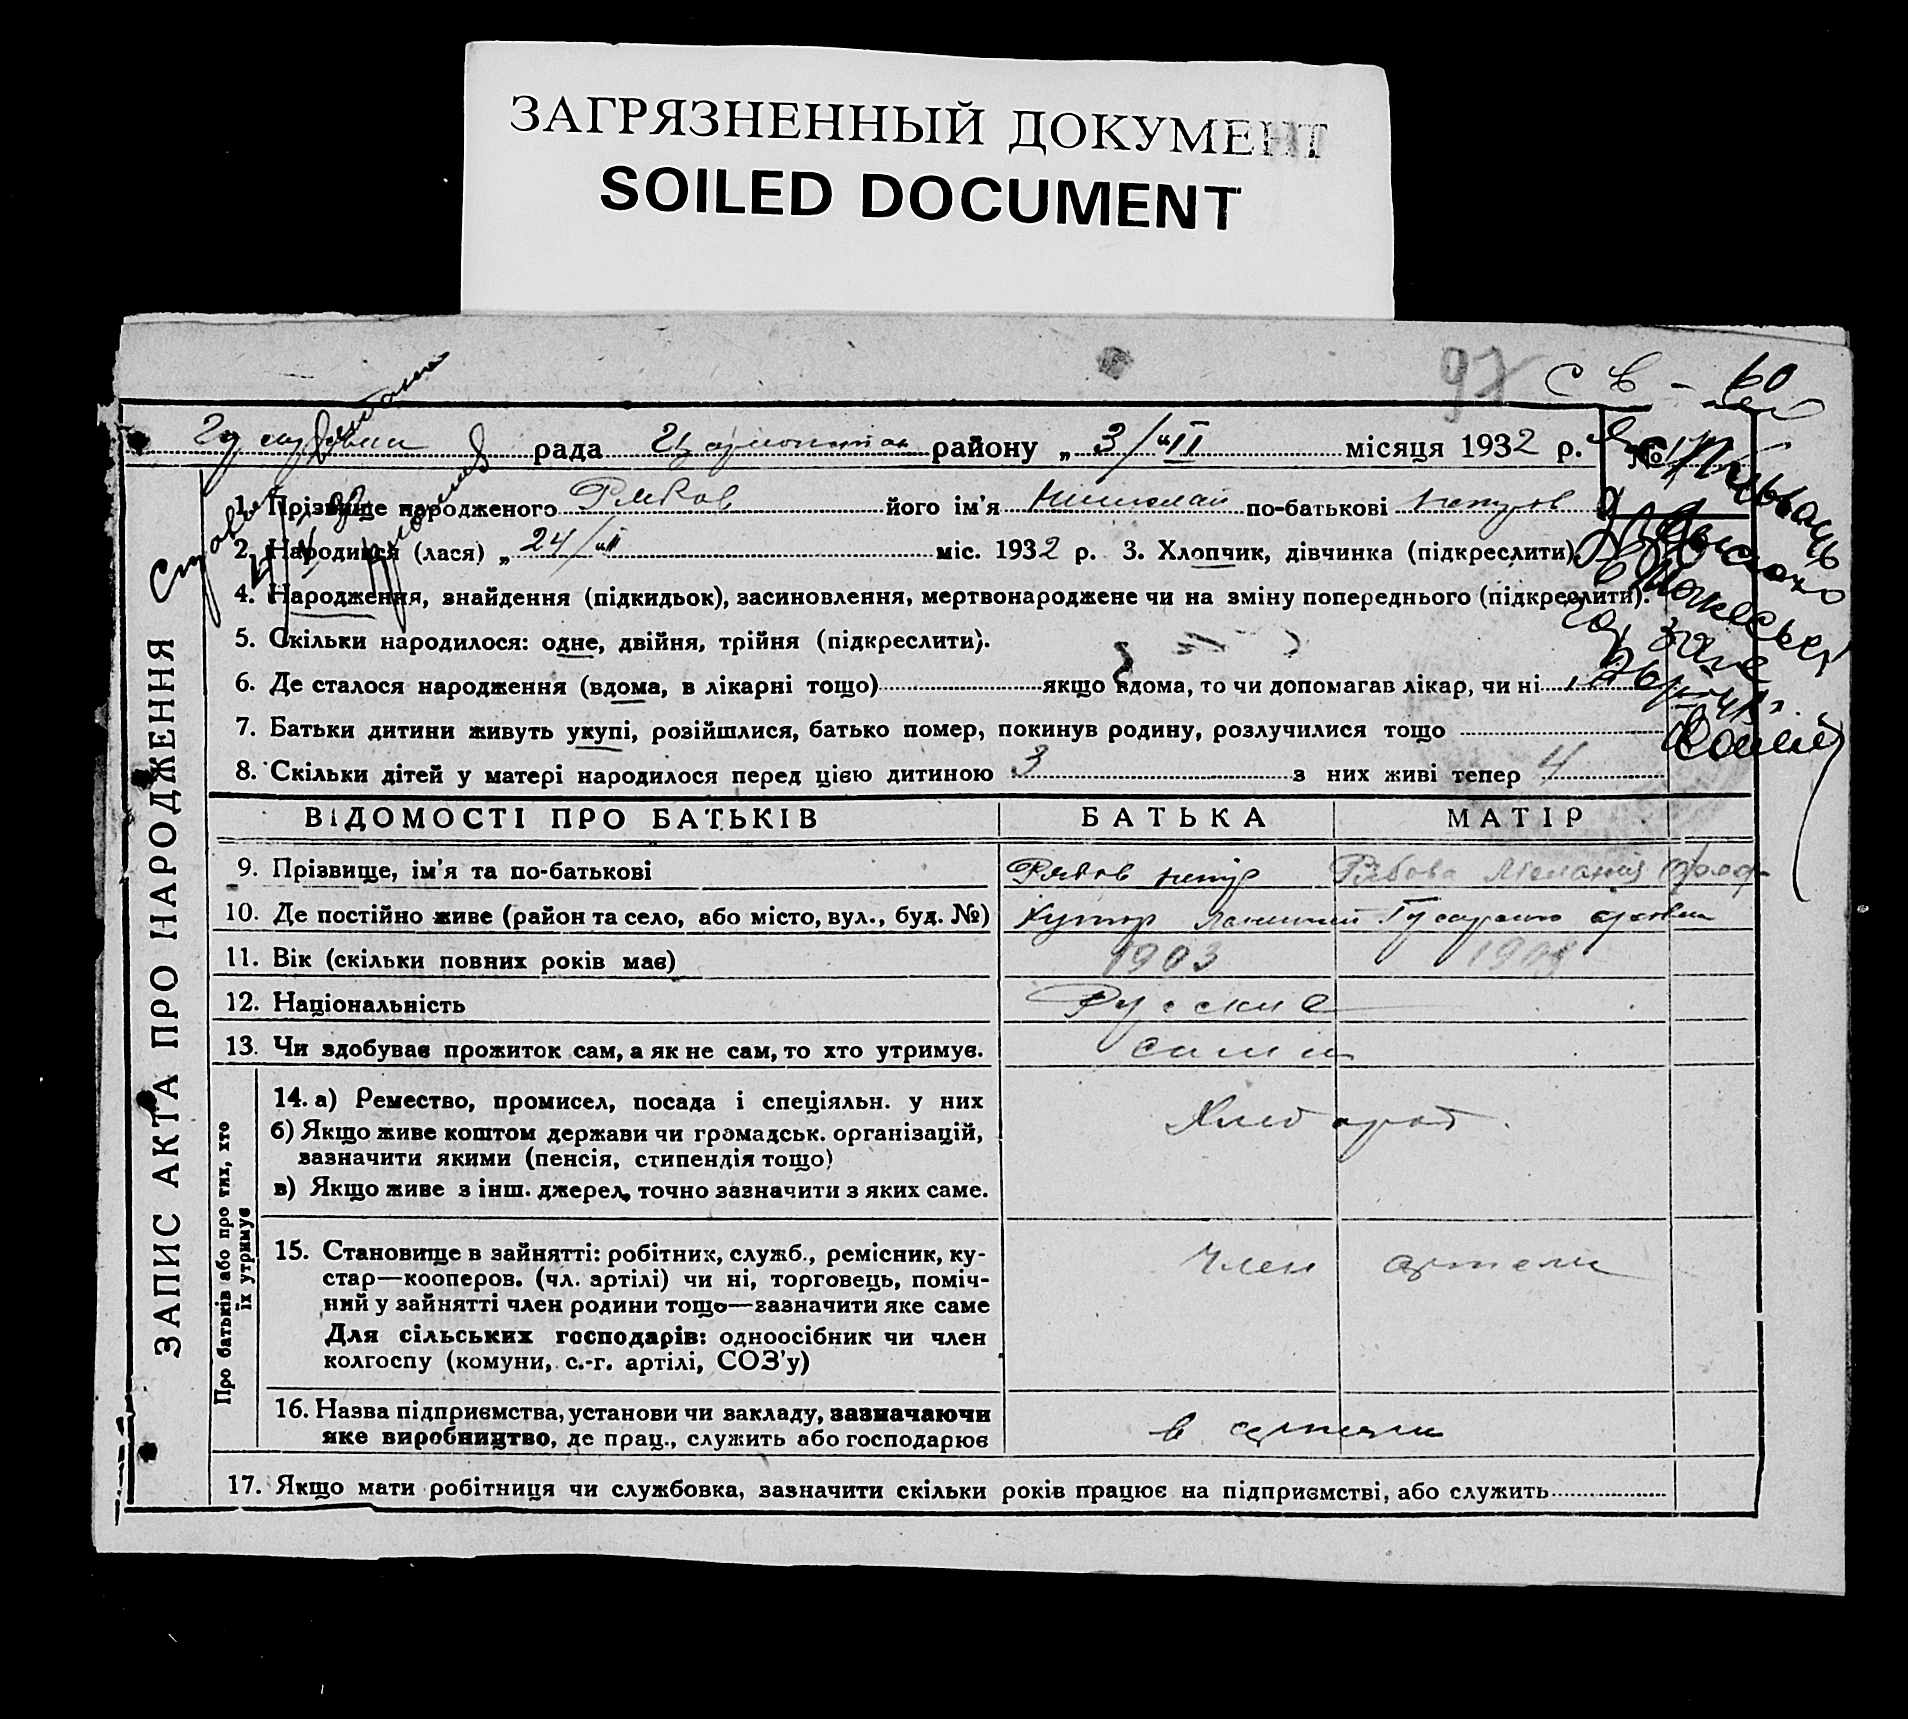 ЗАГРЯЗНЕННЫЙ ДОКУМЕНТ
SOILED DOCUMENT
97 св - 60
рада района району „ 3/"II місяця 1932 р. №
1. Прізвище народженого Рябов його ім'я Николай по-батькові Петров
2. Народився (лася) „ 24/"II міс. 1932 р. 3. Хлопчик, дівчинка (підкреслити).
4. Народження, знайдення (підкидьок), засиновлення, мертвонароджене чи на зміну попереднього (підкреслити).
5. Скільки народилося: одне, двійня, трійня (підкреслити).
6. Де сталося народження (вдома, в лікарні тощо) якщо вдома, то чи допомагав лікар, чи ні
7. Батьки дитини живуть укупі, розійшлися, батько помер, покинув родину, розлучилися тощо
8. Скільки дітей у матері народилося перед цією дитиною 3 з них живі тепер 4
ЗАПИС АКТА ПРО НАРОДЖЕННЯ
ВІДОМОСТІ ПРО БАТЬКІВ БАТЬКА МАТІР
9. Прізвище, ім'я та по-батькові Рябов Петр Рябова Мелания
10. Де постійно живе (район та село, або місто, вул., буд. №) Хутор
11. Вік (скільки повних років має) 1903
12. Національність Русские
13. Чи здобуває прожиток сам, а як не сам, то хто утримує. сами
Про батьків або про тих, хто
їх утримує
14. а) Ремество, промисел, посада і спеціяльн. у них Хлебороб
б) Якщо живе коштом держави чи громадськ. організацій,
зазначити якими (пенсія, стипендія тощо)
в) Якщо живе з інш. джерел, точно зазначити з яких саме.
15. Становище в зайнятті: робітник, служб., ремісник, ку- Член артели
стар—кооперов. (чл. артілі) чи ні, торговець, поміч-
ний у зайнятті член родини тощо—зазначити яке саме
Для сільських господарів: одноосібник чи член
колгоспу (комуни, с.-г. артілі, СОЗ'у)
16. Назва підприємства, установи чи закладу, зазначаючи
яке виробництво, де прац., служить або господарює в артели
17. Якщо мати робітниця чи службовка, зазначити скільки років працює на підприємстві, або служить